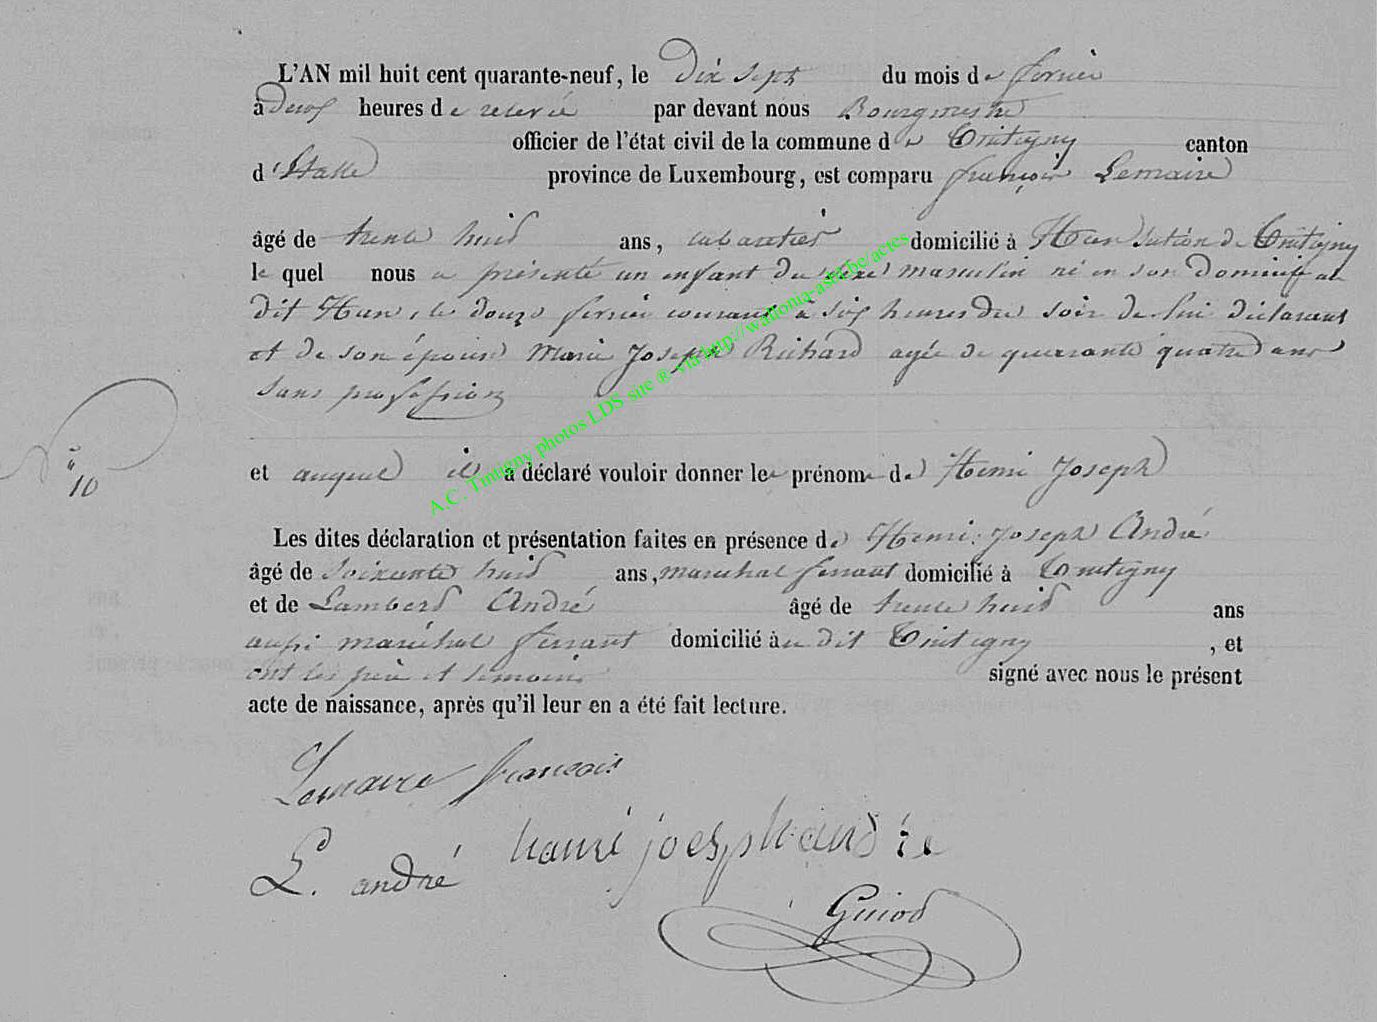 L'AN mil huit cent quarante-neuf, le Dix sept du mois de fevrier
à Deux heures de relevée par devant nous Bourgmestre
officier de l'état civil de la commune de Tintigny canton
d'Etalle province de Luxembourg, est comparu françois Lemaire
âgé de trente huit ans, cabaretier domicilié à Han Section de Tintigny
lequel nous a présenté un enfant du sexe masculin né en son domicile au
dit Han, le douze fevrier courant à six heures du soir de lui déclarant
et de son épouse Marie Joseph Richard agée de quarante quatre ans
sans profession
n 10
et auquel il a déclaré vouloir donner le prénom de Henri Joseph
Les dites déclaration et présentation faites en présence de Henri Joseph André
âgé de soixante huit ans, maréchal ferrant domicilié à Tintigny
et de Lambert André âgé de trente huit ans
aussi maréchal ferrant domicilié au dit Tintigny, et
ont les père et témoins signé avec nous le présent
acte de naissance, après qu'il leur en a été fait lecture.
Lemaire françois
hanri joesph andre
L. andré
Guiot
A.C. Tintigny photos LDS site ® via http://wallonia-asbl.be/actes